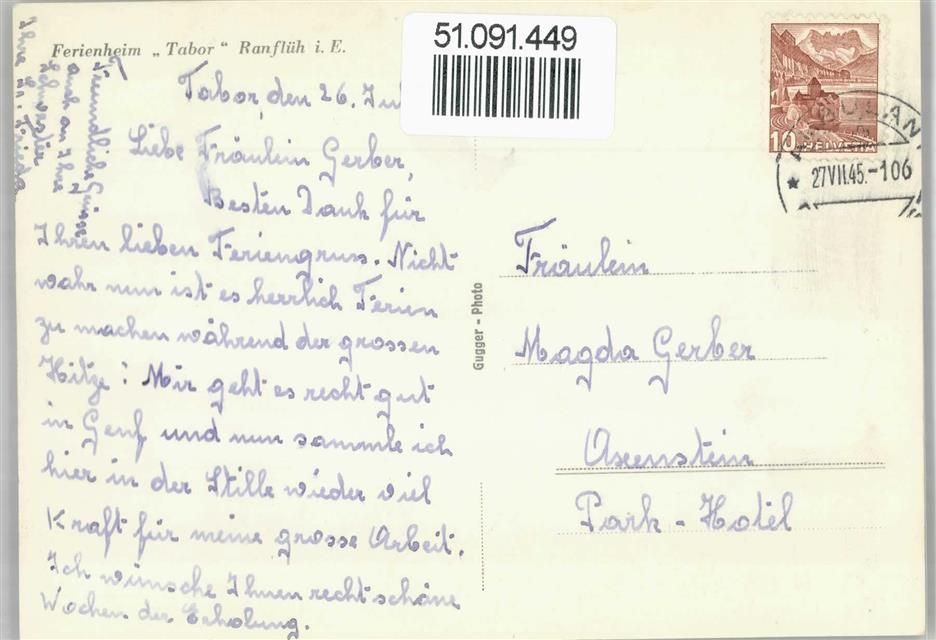 Ferienheim „Tabor“ Ranflüh i. E.
51.091.449
Tabor, den 26. Ju
Liebe Fräulein Gerber,
Besten Dank für
Ihren lieben Feriengruss. Nicht
wahr nun ist es herrlich Ferien
zu machen während der grossen
Hitze! Mir geht es recht gut
in Genf und nun sammle ich
hier in der Stille wieder viel
Kraft für meine grosse Arbeit.
Ich wünsche Ihnen recht schöne
Wochen der Erholung.
Freundliche Grüsse
auch an Ihre
Schwester
Ihre Frieda
Gugger - Photo
10 HELVETIA
27VII.45.-106
Fräulein
Magda Gerber
Axenstein
Park - Hotel